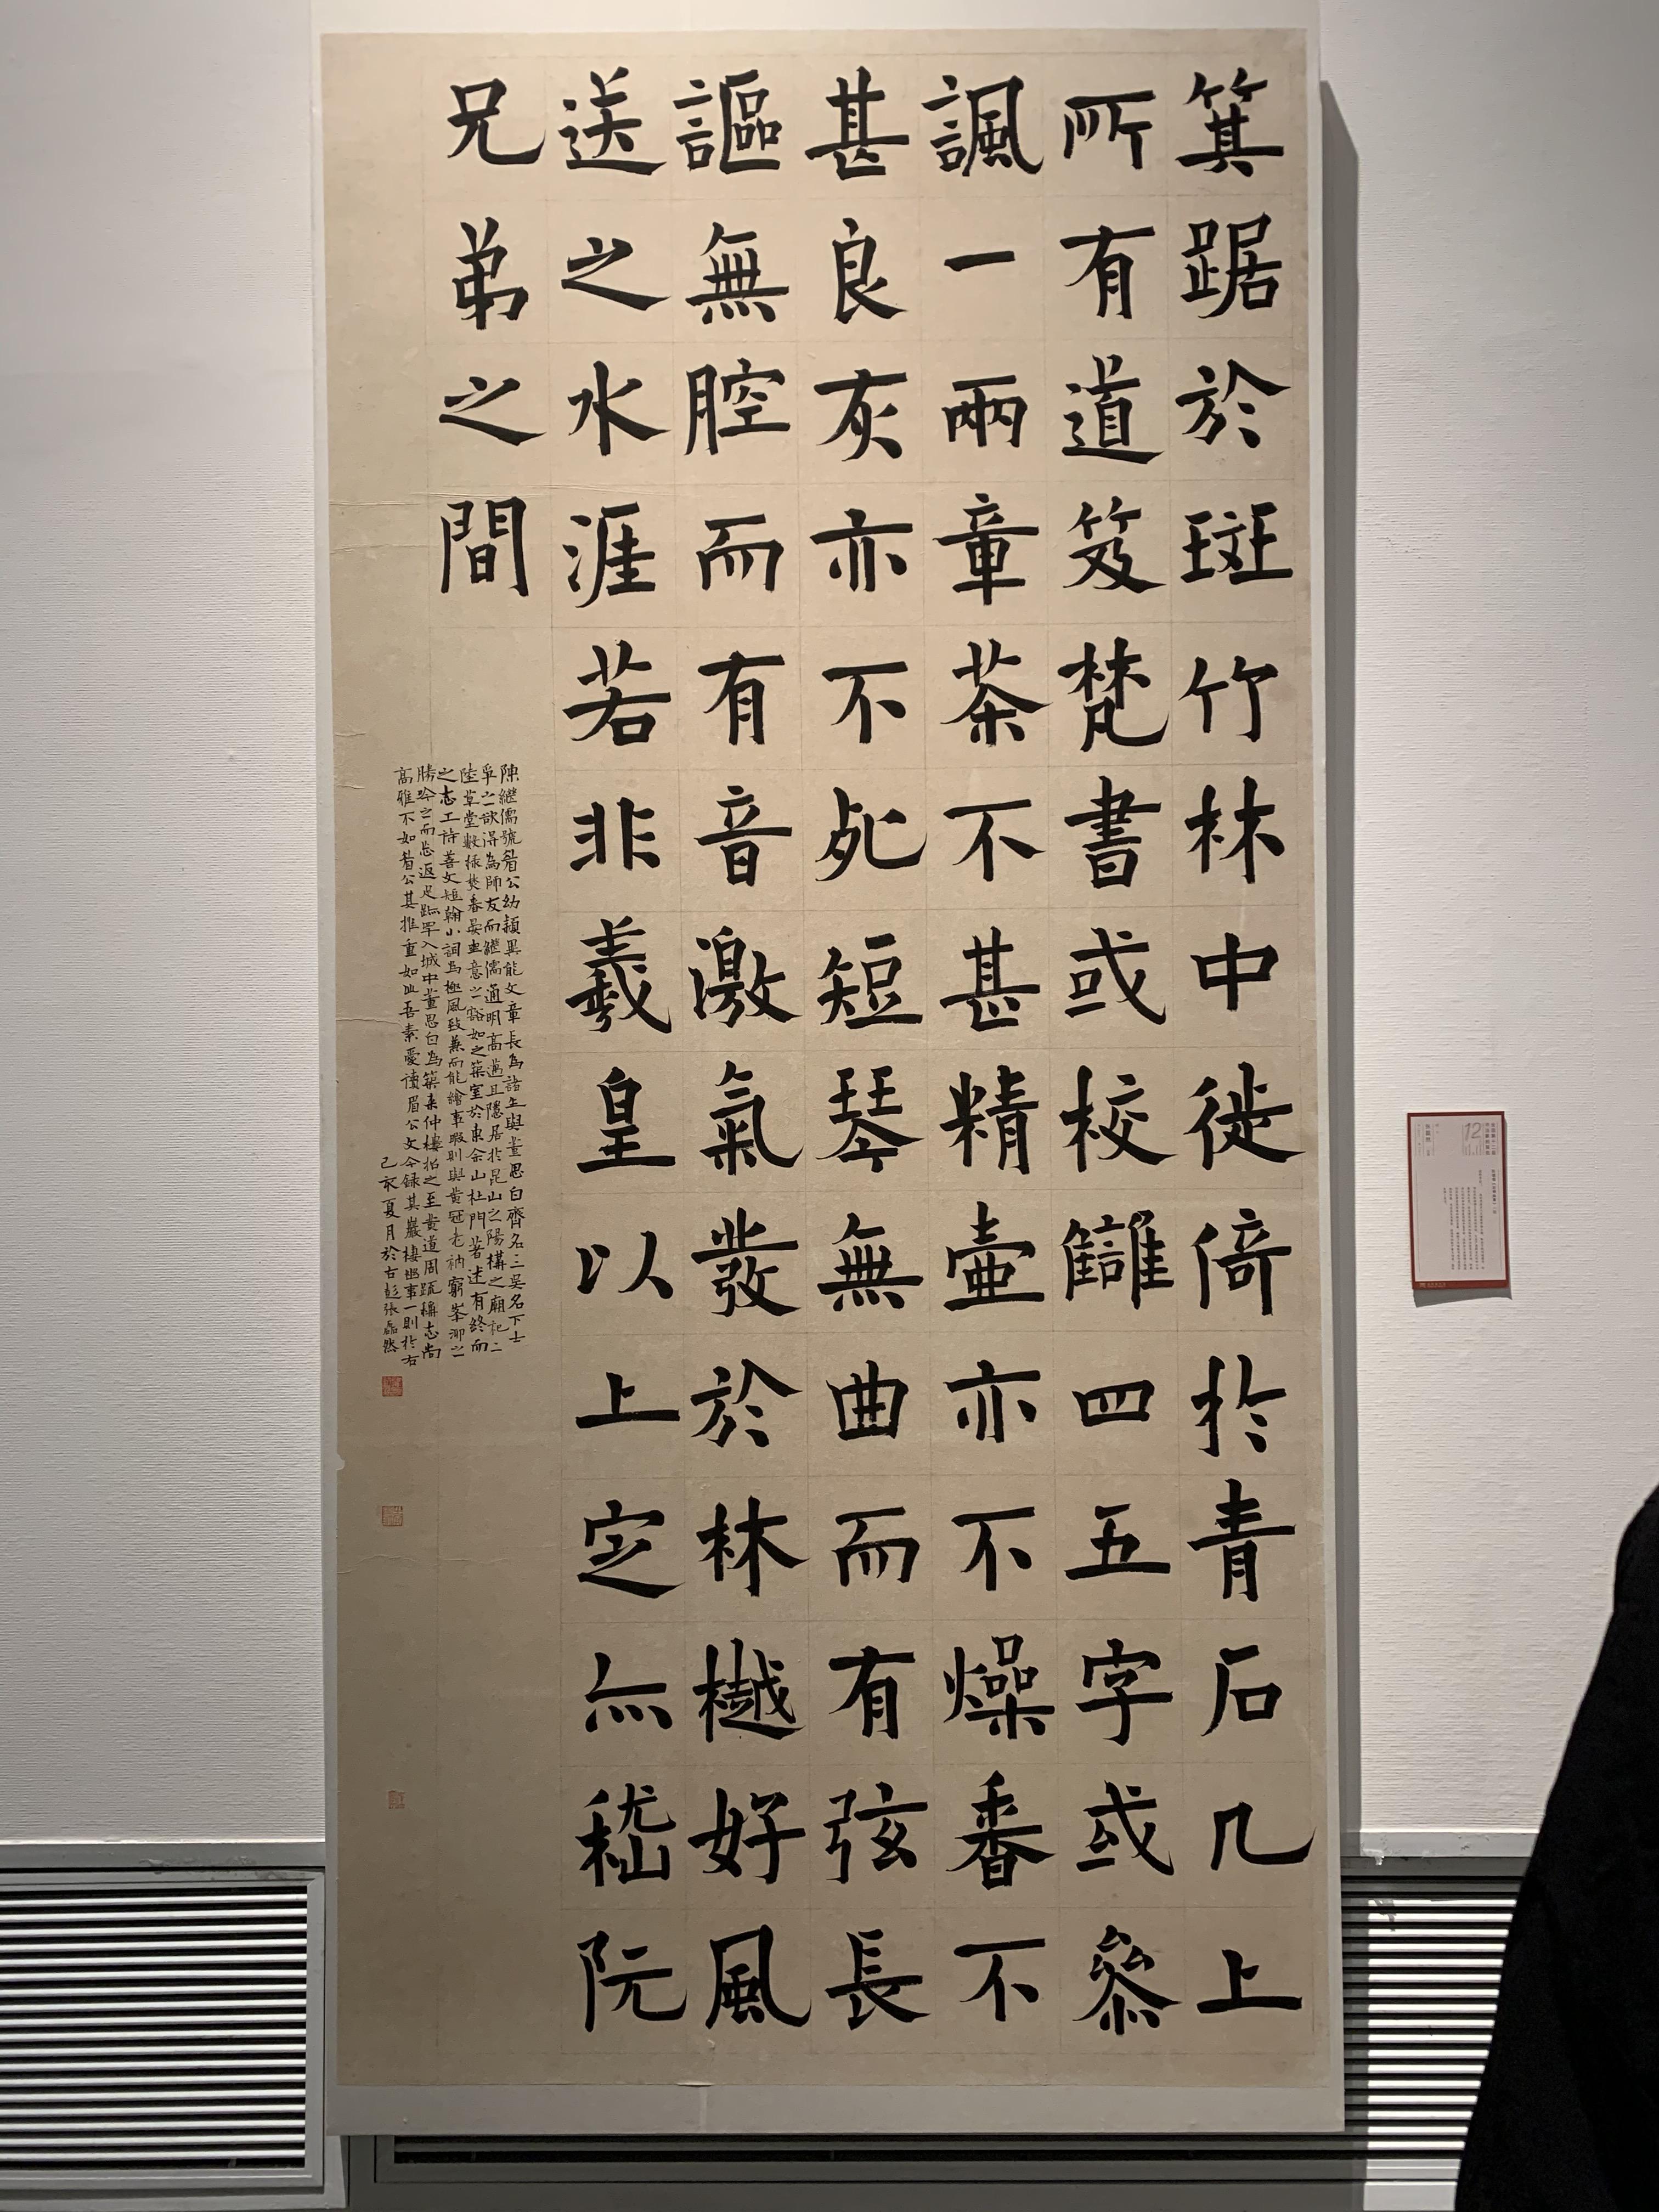 箕踞於斑竹林中徙倚於青石几上
所有道笈梵書或校讎四五字或參
諷一兩章茶不甚精壺亦不燥香不
甚良灰亦不死短琴無曲而有弦長
謳無腔而有音激氣發於林樾好風
送之水涯若非羲皇以上定亦嵇阮
兄弟之間
陳繼儒號眉公幼穎異能文章長為諸生與董思白齊名三吳名下士
爭之欲得為師友而繼儒通明高邁且隱居於昆山之陽構之廟祀二
陸草堂數椽焚香晏坐意之豁如之築室於東佘山杜門著述有終焉
之志工詩善文短翰小詞為極風致兼而能繪事暇則與黃冠老衲窮峯泖之
勝吟之而忘返足跡罕入城中董思白為築來仲樓招之至黃道周疏稱志尚
高雅不如眉公其推重如此吾素愛讀眉公文今錄其巖棲幽事一則於右
己亥夏月於古彭張磊然
12